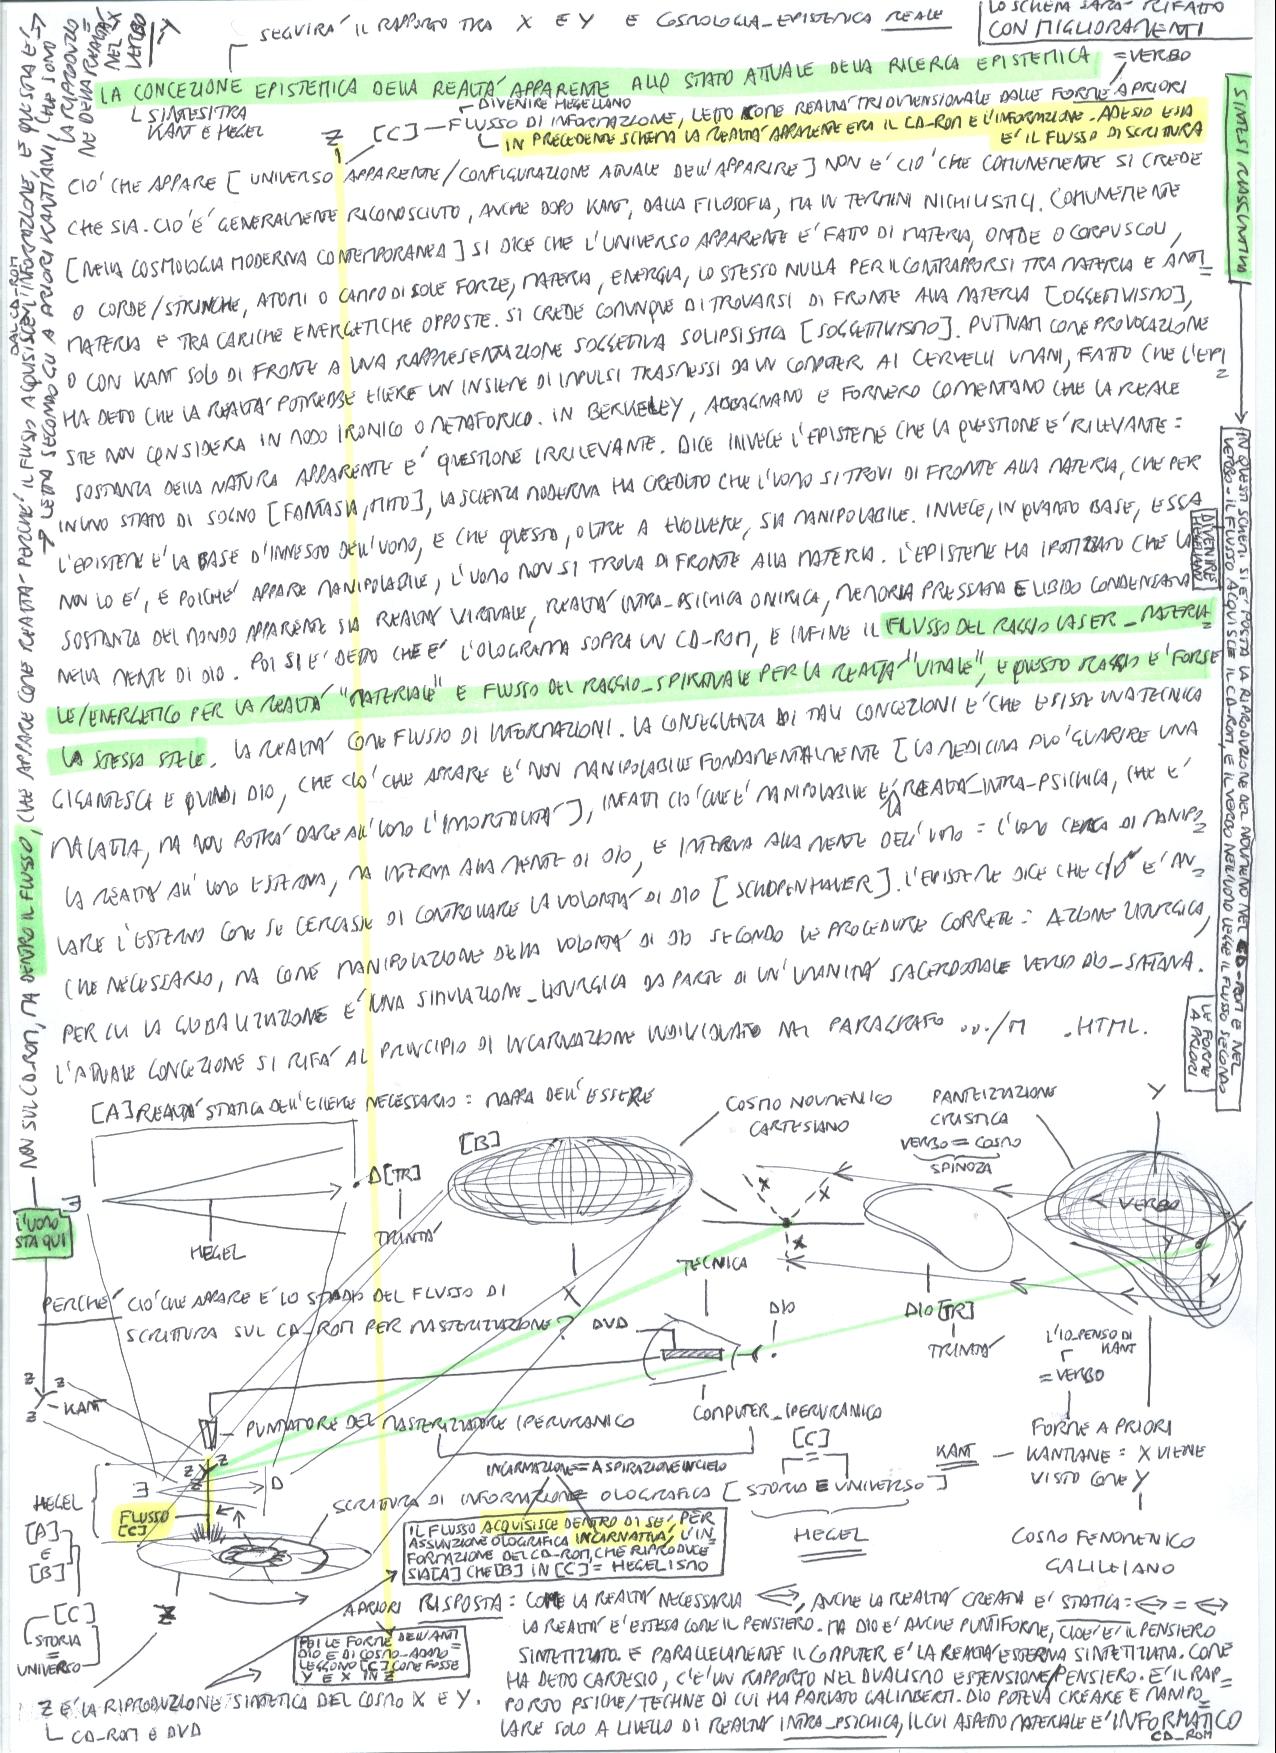 SEGUIRA' IL RAPPORTO TRA X E Y E COSMOLOGIA-EPISTEMICA REALE
LO SCHEMA SARA' RIFATTO
CON MIGLIORAMENTI
LA CONCEZIONE EPISTEMICA DELLA REALTA' APPARENTE ALLO STATO ATTUALE DELLA RICERCA EPISTEMICA
= VERBO
SINTESI TRA
KANT E HEGEL
DIVENIRE HEGELIANO
Z [C] — FLUSSO DI INFORMAZIONE, LETTO COME REALTA' TRIDIMENSIONALE DALLE FORME A PRIORI
IN PRECEDENTE SCHEMA LA REALTA' APPARENTE ERA IL CD-ROM E L'INFORMAZIONE. ADESSO ESSA
E' IL FLUSSO DI SCRITTURA
CIO' CHE APPARE [UNIVERSO APPARENTE/CONFIGURAZIONE ATTUALE DELL'APPARIRE] NON E' CIO' CHE COMUNEMENTE SI CREDE
CHE SIA. CIO' E' GENERALMENTE RICONOSCIUTO, ANCHE DOPO KANT, DALLA FILOSOFIA, MA IN TERMINI NICHILISTICI. COMUNEMENTE
[NELLA COSMOLOGIA MODERNA CONTEMPORANEA] SI DICE CHE L'UNIVERSO APPARENTE E' FATTO DI MATERIA, ONDE O CORPUSCOLI,
O CORDE/STRINGHE, ATOMI O CAMPO DI SOLE FORZE, MATERIA, ENERGIA, LO STESSO NULLA PER IL CONTRAPPORSI TRA MATERIA E ANTI=
MATERIA E TRA CARICHE ENERGETICHE OPPOSTE. SI CREDE COMUNQUE DI TROVARSI DI FRONTE ALLA MATERIA [OGGETTIVISMO],
O CON KANT SOLO DI FRONTE A UNA RAPPRESENTAZIONE SOGGETTIVA SOLIPSISTICA [SOGGETTIVISMO]. PUTNAM COME PROVOCAZIONE
HA DETTO CHE LA REALTA' POTREBBE ESSERE UN INSIEME DI IMPULSI TRASMESSI DA UN COMPUTER AI CERVELLI UMANI, FATTO CHE L'EPI=
STEME NON CONSIDERA IN MODO IRONICO O METAFORICO. IN BERKELEY, ABBAGNANO E FORNERO COMMENTANO CHE LA REALE
SOSTANZA DELLA NATURA APPARENTE E' QUESTIONE IRRILEVANTE. DICE INVECE L'EPISTEME CHE LA QUESTIONE E' RILEVANTE =
IN UNO STATO DI SOGNO [FANTASIA, MITO], LA SCIENZA MODERNA HA CREDUTO CHE L'UOMO SI TROVI DI FRONTE ALLA MATERIA, CHE PER
L'EPISTEME E' LA BASE D'INNESTO DELL'UOMO, E CHE QUESTO, OLTRE A EVOLVERE, SIA MANIPOLABILE. INVECE, IN QUANTO BASE, ESSA
NON LO E', E POICHE' APPARE MANIPOLABILE, L'UOMO NON SI TROVA DI FRONTE ALLA MATERIA. L'EPISTEME HA IPOTIZZATO CHE LA
SOSTANZA DEL MONDO APPARENTE SIA REALTA' VIRTUALE, REALTA' INTRA-PSICHICA ONIRICA, MEMORIA PRESSATA E LIBIDO CONDENSATA
NELLA MENTE DI DIO. POI SI E' DETTO CHE E' L'OLOGRAMMA SOPRA UN CD-ROM, E INFINE IL FLUSSO DEL RAGGIO LASER — MATERIA=
LE/ENERGETICO PER LA REALTA' "MATERIALE" E FLUSSO DEL RAGGIO-SPIRITUALE PER LA REALTA' "VITALE", E QUESTO RAGGIO E' FORSE
LA STESSA STELE. LA REALTA' COME FLUSSO DI INFORMAZIONI. LA CONSEGUENZA DI TALI CONCEZIONI E' CHE ESISTE UNA TECNICA
GIGANTESCA E QUINDI DIO, CHE CIO' CHE APPARE E' NON MANIPOLABILE FONDAMENTALMENTE [LA MEDICINA PUO' GUARIRE UNA
MALATTIA, MA NON POTRA' DARE ALL'UOMO L'IMMORTALITA'], INFATTI CIO' CHE E' MANIPOLABILE E' REALTA' INTRA-PSICHICA, CHE E'
LA REALTA' ALL'UOMO ESTERNA, MA INTERNA ALLA MENTE DI DIO, E INTERNA ALLA MENTE DELL'UOMO = L'UOMO CERCA DI MANIPO=
LARE L'ESTERNO COME SE CERCASSE DI CONTROLLARE LA VOLONTA' DI DIO [SCHOPENHAUER]. L'EPISTEME DICE CHE CIO' E' AN=
CHE NECESSARIO, MA COME MANIPOLAZIONE DELLA VOLONTA' DI DIO SECONDO LE PROCEDURE CORRETTE = AZIONE LITURGICA,
PER CUI LA GLOBALIZZAZIONE E' UNA SIMULAZIONE-LITURGICA DA PARTE DI UN'UMANITA' SACERDOTALE VERSO DIO-SATANA.
L'ATTUALE CONCEZIONE SI RIFA' AL PRINCIPIO DI INCARNAZIONE INDIVIDUATO NEL PARAGRAFO ../M .HTML.
SINTESI RIASSUNTIVA
IN QUESTI SCHEMI SI E' POSTA LA RIPRODUZIONE DEL NOUMENO NEL CD-ROM E NEL
VERBO. IL FLUSSO ACQUISISCE IL CD-ROM, E IL VERBO NELL'UOMO LEGGE IL FLUSSO SECONDO
LE FORME
A PRIORI
DIVENIRE
HEGELIANO
L'UOMO
STA QUI
NON SUL CD-ROM, MA DENTRO IL FLUSSO, CHE APPARE COME REALTA' PERCHE' IL FLUSSO ACQUISISCE L'INFORMAZIONE, E QUESTA E'
DAL CD-ROM
LETTA SECONDO GLI A PRIORI KANTIANI, CHE SONO
LA RIPRODUZIO
NE DELLA REALTA'
NEL X
VERBO
Y
[A] REALTA' STATICA DELL'ESSERE NECESSARIO = MAPPA DELL'ESSERE
[B]
COSMO NOUMENICO
CARTESIANO
PANTEIZZAZIONE
CRISTICA
VERBO = COSMO
SPINOZA
Y
VERBO
X
X
X
Y
Y
Y
D[TR]
TRINITA'
HEGEL
X
TECNICA
DIO
DIO [TR]
TRINITA'
DVD
PERCHE' CIO' CHE APPARE E' LO STADIO DEL FLUSSO DI
SCRITTURA SUL CD-ROM PER MASTERIZZAZIONE?
L'IO PENSO DI
KANT
= VERBO
Z
Z
Z
KANT
PUNTATORE DEL MASTERIZZATORE IPERURANICO
COMPUTER-IPERURANICO
[C]
=
KANT
FORME A PRIORI
KANTIANE = X VIENE
VISTO COME Y
INCARNAZIONE = ASPIRAZIONE IN CIELO
Z
Z
D
HEGEL
SCRITTURA DI INFORMAZIONE OLOGRAFICA [STORIA E UNIVERSO]
HEGEL
FLUSSO
[C]
[A]
E
[B]
IL FLUSSO ACQUISISCE DENTRO DI SE', PER
ASSUNZIONE OLOGRAFICA INCARNATIVA, L'IN
FORMAZIONE DEL CD-ROM, CHE RIPRODUCE
SIA [A] CHE [B] IN [C] = HEGELISMO
COSMO FENOMENICO
GALILEIANO
[C]
STORIA
=
UNIVERSO
Z
A PRIORI
POI LE FORME DELL'ANTI
DIO E DI COSMO-ADAMO
LEGGONO [C] COME FOSSE
Y E X IN Z
RISPOSTA: COME LA REALTA' NECESSARIA ⟺, ANCHE LA REALTA' CREATA E' STATICA = ⟺ = ⟺
LA REALTA' E' ESTESA COME IL PENSIERO. MA DIO E' ANCHE PUNTIFORME, CIOE' E' IL PENSIERO
SINTETIZZATO. E PARALLELAMENTE IL COMPUTER E' LA REALTA' ESTERNA SINTETIZZATA. COME
HA DETTO CARTESIO, C'E' UN RAPPORTO NEL DUALISMO ESTENSIONE/PENSIERO. E' IL RAP=
PORTO PSICHE/TECHNE DI CUI HA PARLATO GALIMBERTI. DIO POTEVA CREARE E MANIPO=
LARE SOLO A LIVELLO DI REALTA' INTRA-PSICHICA, IL CUI ASPETTO MATERIALE E' INFORMATICO
CD-ROM
Z E' LA RIPRODUZIONE SINTETICA DEL COSMO X E Y.
CD-ROM E DVD